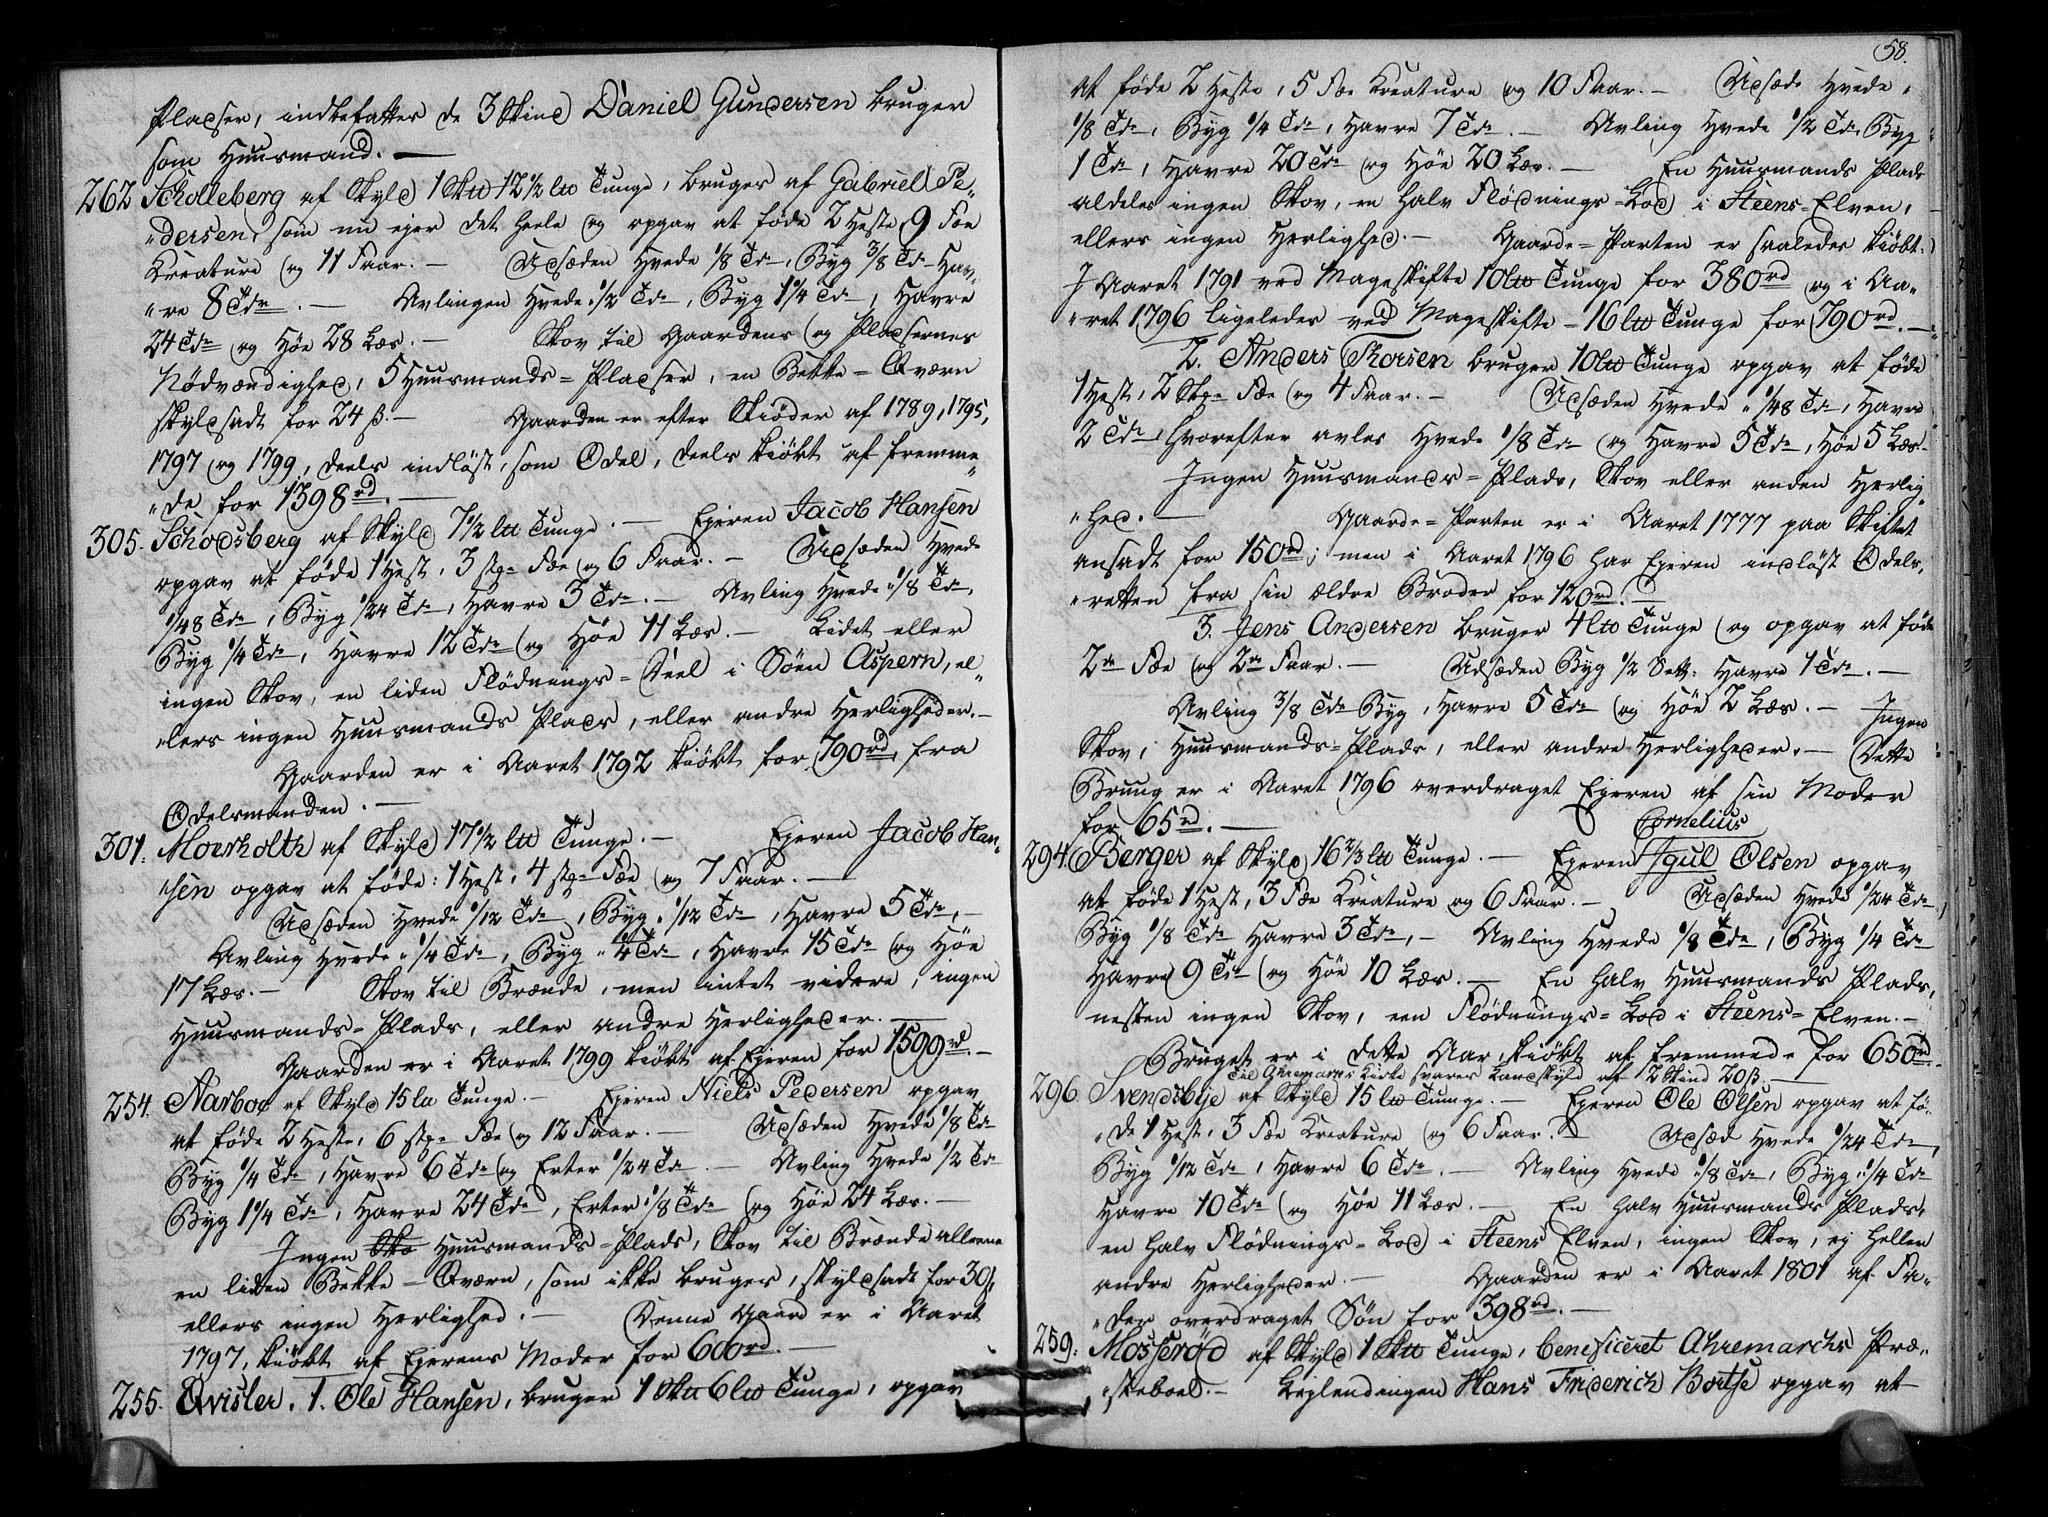 Pladser, indbefattes de 3 Skind Daniel Gundersen bruger
som Huusmand. —
262 Scholleberg af Skyld 1 Skt 12 1/2 lt Tunge, bruges af Gabriel Pe„
„dersen, som nu ejer det heele og opgav at føde 2 Heste, 9 Fæ
Kreature og 11 Faar. — Udsæden Hvede 1/8 Tde, Byg 3/8 Tde Hav„
„re 8 Tdr. — Avlingen Hvede 1/2 Tde, Byg 1 1/4 Tde, Havre
24 Tdr og Høe 28 Læs. — Skov til Gaardens og Pladsernes
Nødvændighed, 5 Huusmands-Pladser, en Bekke-Qværn
skyldsadt for 24 ß. — Gaarden er efter Skiøder af 1789, 1795,
1797 og 1799, deels indløst, som Odel, deels kiøbt af fremme„
„de for 1398 rd. —
305. Schodsberg af Skyld 7 1/2 lt Tunge. — Ejeren Jacob Hansen
opgav at føde 1 Hest, 3 stk Fæ og 6 Faar. — Udsæden Hvede
1/48 Tde, Byg 1/24 Tde, Havre 3 Tdr. — Avling Hvede 1/8 Tde,
Byg 1/4 Tde, Havre 12 Tdr og Høe 11 Læs. — Lidet eller
ingen Skov, en liden Flødnings-Deel i Søen Aspern, el„
„lers ingen Huusmands Plads, eller andre Herligheder. —
Gaarden er i Aaret 1792 kiøbt for 790 rd, fra
Odelsmanden. —
301. Moerholth af Skyld 17 1/2 lt Tunge. — Ejeren Jacob Han„
„sen opgav at føde: 1 Hest, 4 stk Fæ og 7 Faar. —
Udsæden Hvede 1/12 Tde, Byg 1/12 Tde, Havre 5 Tdr, —
Avling Hvede 1/4 Tde, Byg 1/4 Tde, Havre 15 Tdr og Høe
17 Læs. — Skov til Brænde, men intet videre, ingen
Huusmands-Plads, eller andre Herligheder. —
Gaarden er i Aaret 1799 kiøbt af Ejeren for 1599 rd. —
254. Narboe af Skyld 15 lt Tunge. — Ejeren Niels Pedersen opgav
at føde 2 Heste, 6 stk Fæ og 12 Faar. — Udsæden Hvede 1/8 Tde
Byg 1/4 Tde, Havre 6 Tdr og Erter 1/24 Tde. — Avling Hvede 1/2 Tde
Byg 1 1/4 Tde, Havre 24 Tdr, Erter 1/8 Tde og Høe 24 Læs. —
Ingen Sko Huusmands-Plads, Skov til Brænde alleene
en liden Bekke-Qværn, som ikke bruges, skyldsadt for 30 ß,
ellers ingen Herlighed. — Denne Gaard er i Aaret
1797, kiøbt af Ejerens Moder for 600 rd. —
255. Qvisler. 1. Ole Hansen, bruger 1 Skt 6 lt Tunge, opgav
58.
at føde 2 Heste, 5 Fæ Kreature og 10 Faar. — Udsæd Hvede
1/8 Tde, Byg 1/4 Tde, Havre 7 Tdr. — Avling Hvede 1/2 Tde, Byg
1 Tde, Havre 20 Tdr og Høe 20 Læs. — En Huusmands Plads
aldeles ingen Skov, en halv Flødnings-Lod i Steens-Elven,
ellers ingen Herlighed. — Gaarde-Parten er saaledes kiøbt:
I Aaret 1791 ved Mageskifte 10 lt Tunge for 380 rd og i Aa„
„ret 1796 ligeledes ved Mageskifte — 16 lt Tunge for 790 rd. —
2. Anders Thorsen bruger 10 lt Tunge opgav at føde
1 Hest, 2 Stk Fæ og 4 Faar. — Udsæden Hvede 1/48 Tde, Havre
2 Tdr hvorefter avles Hvede 1/8 Tde og Havre 5 Tdr, Høe 5 Læs. —
Ingen Huusmands-Plads, Skov eller anden Herlig„
„hed. — Gaarde-Parten er i Aaret 1777 paa Skiftet
ansadt for 150 rd; men i Aaret 1796 har Ejeren indløst Odels„
„retten fra sin ældre Broder for 120 rd. —
3. Jens Andersen bruger 4 lt Tunge og opgav at føde
2de Fæ og 2de Faar. — Udsæden Byg 1/2 Sett: Havre 1 Tde. —
Avling 3/8 Tde Byg, Havre 5 Tdr og Høe 2 Læs. — Ingen
Skov, Huusmands-Plads, eller andre Herligheder. — Dette
Bruug er i Aaret 1796 overdraget Ejeren af sin Moder
for 65 rd. —
Cornelius
294. Berger af Skyld 16 2/3 lt Tunge. — Ejeren Igul Olsen opgav
at føde 1 Hest, 3 Fæ Kreature og 6 Faar. — Udsæden Hvede 1/24 Tde
Byg 1/8 Tde Havre 3 Tdr, — Avling Hvede 1/8 Tde, Byg 1/4 Tde
Havre 9 Tdr og Høe 10 Læs. — En halv Huusmands Plads,
nesten ingen Skov, een Flødnings-Lod i Steens-Elven. —
Bruget er i dette Aar kiøbt af fremmede for 650 rd.
til Ahremarks Kirke svares Landskyld af 2 Skind 20 ß. —
296 Svendsbye af Skyld 15 lt Tunge. — Ejeren Ole Olsen opgav at fø„
„de 1 Hest, 3 Fæ Kreature og 6 Faar. — Udsæd Hvede 1/24 Tde,
Byg 1/12 Tde, Havre 6 Tdr. — Avling Hvede 1/8 Tde, Byg 1/4 Tde
Havre 10 Tdr og Høe 11 Læs. — En halv Huusmands Plads,
en halv Flødnings-Lod i Steens Elven, ingen Skov, ej heller
andre Herligheder. — Gaarden er i Aaret 1801 af Fa„
„der overdraget Søn for 398 rd. —
259. Mosserød af Skyld 1 Skt Tunge, benificeret Ahremarchs Præ„
„steboel. — Leylendingen Hans Friderich Bortse opgav at